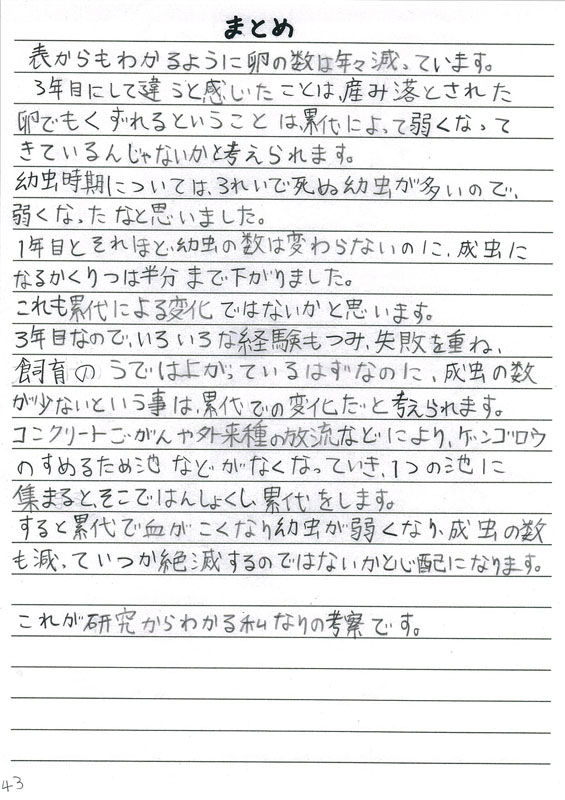 まとめ
表からもわかるように卵の数は年々減っています。
3年目にして違うと感じたことは、産み落とされた
卵でもくずれるということは、累代によって弱くなって
きているんじゃないかと考えられます。
幼虫時期については、3れいで死ぬ幼虫が多いので、
弱くなったなと思いました。
1年目とそれほど、幼虫の数は変わらないのに、成虫に
なるかくりつは半分まで下がりました。
これも累代による変化ではないかと思います。
3年目なので、いろいろな経験もつみ、失敗を重ね、
飼育のうでは上がっているはずなのに、成虫の数
が少ないという事は、累代での変化だと考えられます。
コンクリートごがんや外来種の放流などにより、ゲンゴロウ
のすめるため池などがなくなっていき、1つの池に
集まると、そこではんしょくし、累代をします。
すると累代で血がこくなり幼虫が弱くなり、成虫の数
も減っていつか絶滅するのではないかと心配になります。
これが研究からわかる私なりの考察です。
43